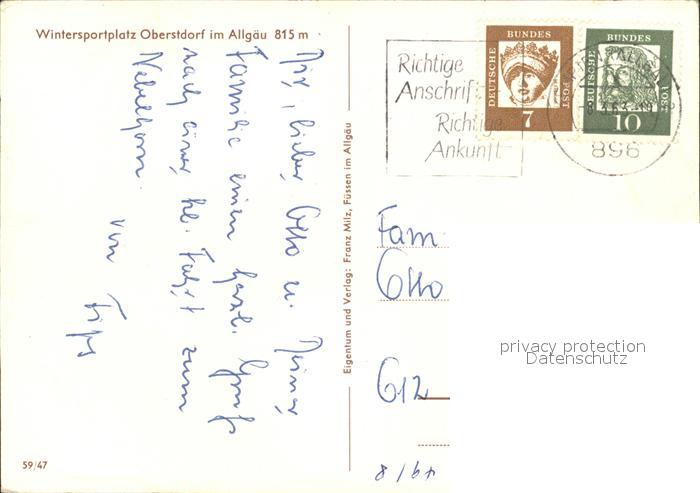 Wintersportplatz Oberstdorf im Allgäu 815 m
Dir, lieber Otto u. Deiner
Familie einen herzl. Gruß
nach einer kl. Fahrt zum
Nebelhorn.
von
Eigentum und Verlag: Franz Milz, Füssen im Allgäu
59/47
Richtige
Anschrift
Richtige
Ankunft
DEUTSCHE BUNDES POST
7
DEUTSCHE BUNDES POST
10
896
Fam
Otto
privacy protection
Datenschutz
612